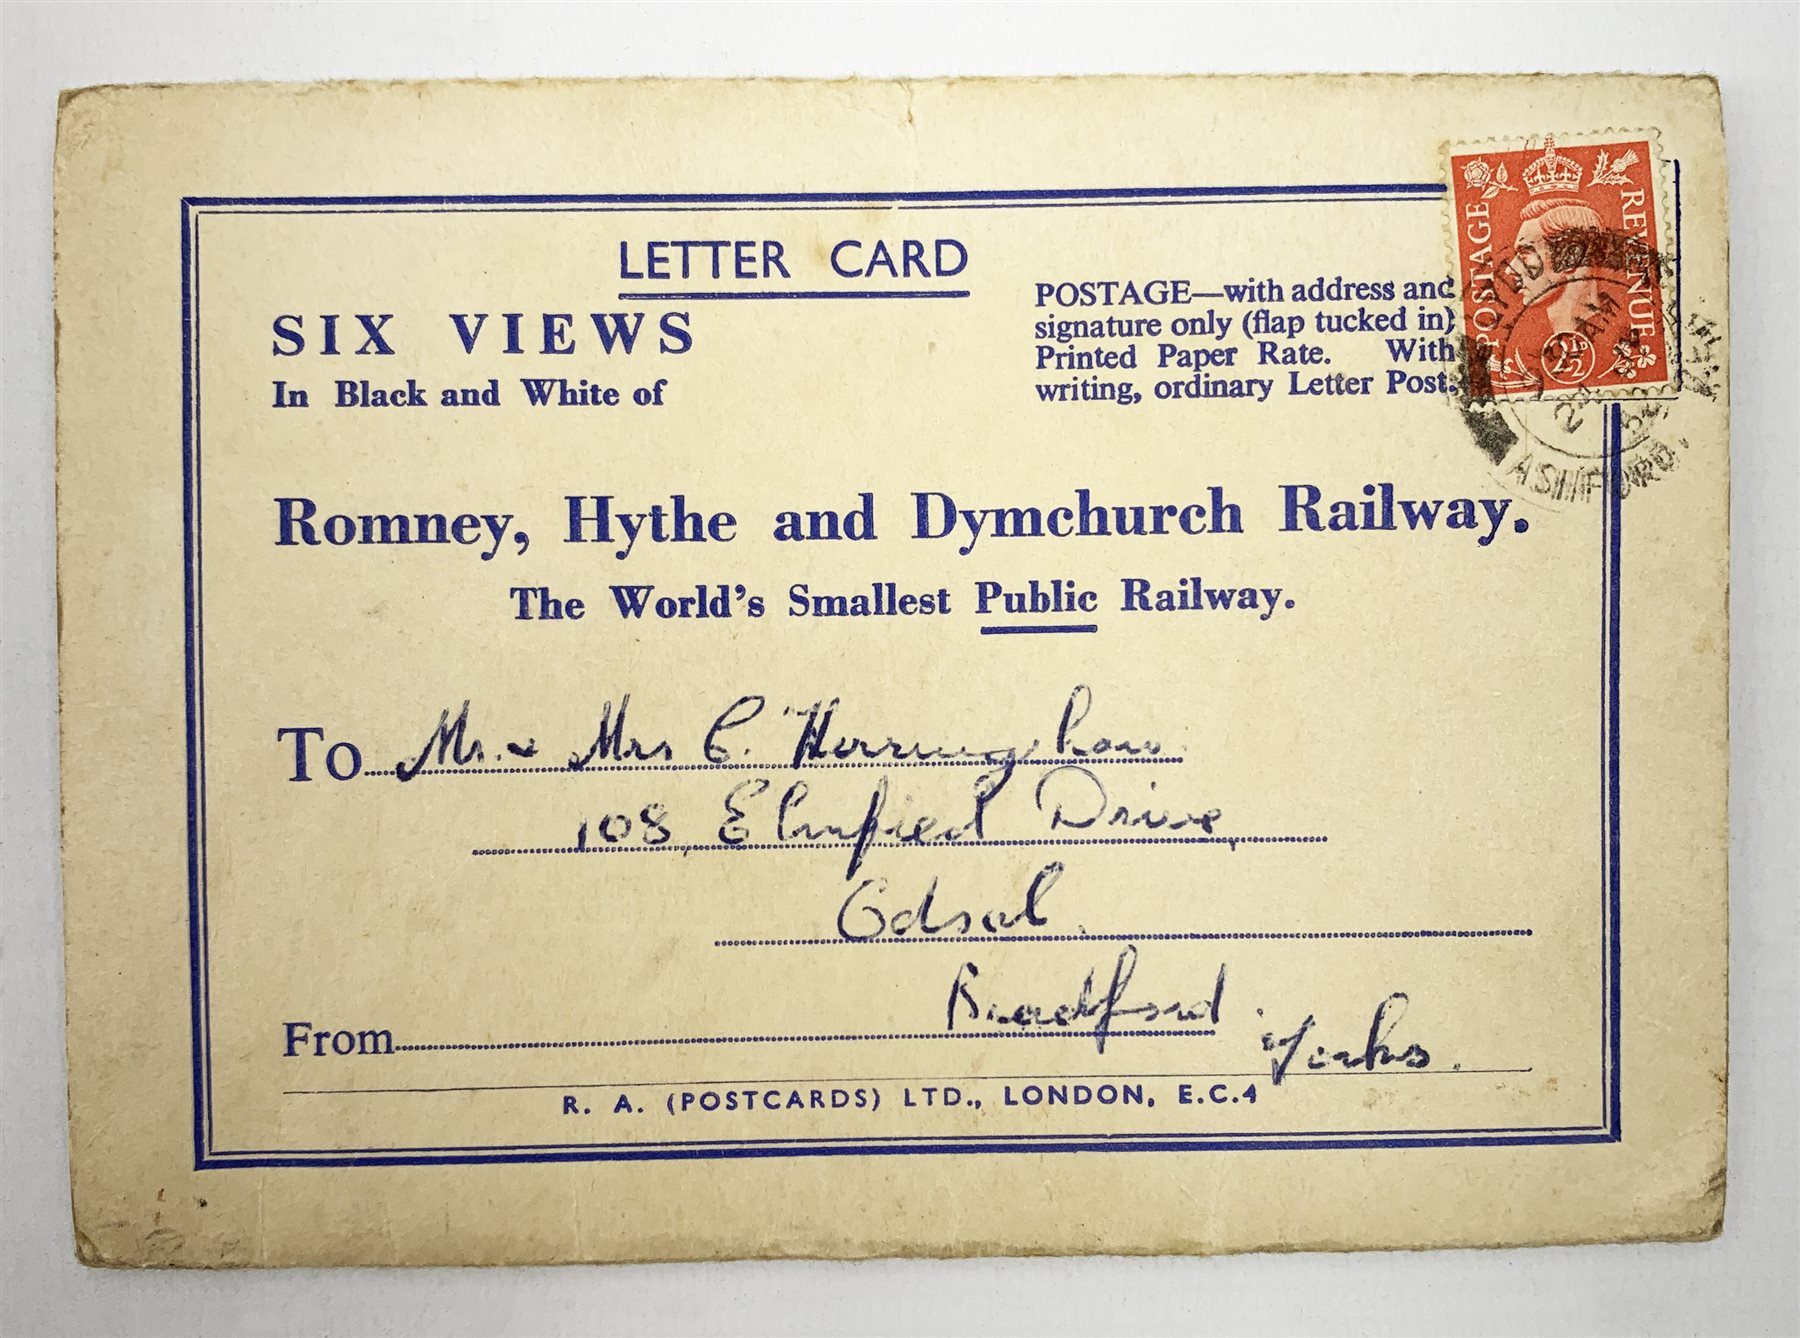 LETTER CARD
SIX VIEWS
In Black and White of
POSTAGE—with address and
signature only (flap tucked in)
Printed Paper Rate. With
writing, ordinary Letter Post.
POSTAGE
REVENUE
2½D
LYDD
AM
ASHFORD
Romney, Hythe and Dymchurch Railway.
The World's Smallest Public Railway.
To Mr. & Mrs C. Herringshaw.
108, Elmfield Drive,
Odsal.
Bradford.
From
Yorks.
R. A. (POSTCARDS) LTD., LONDON, E.C.4